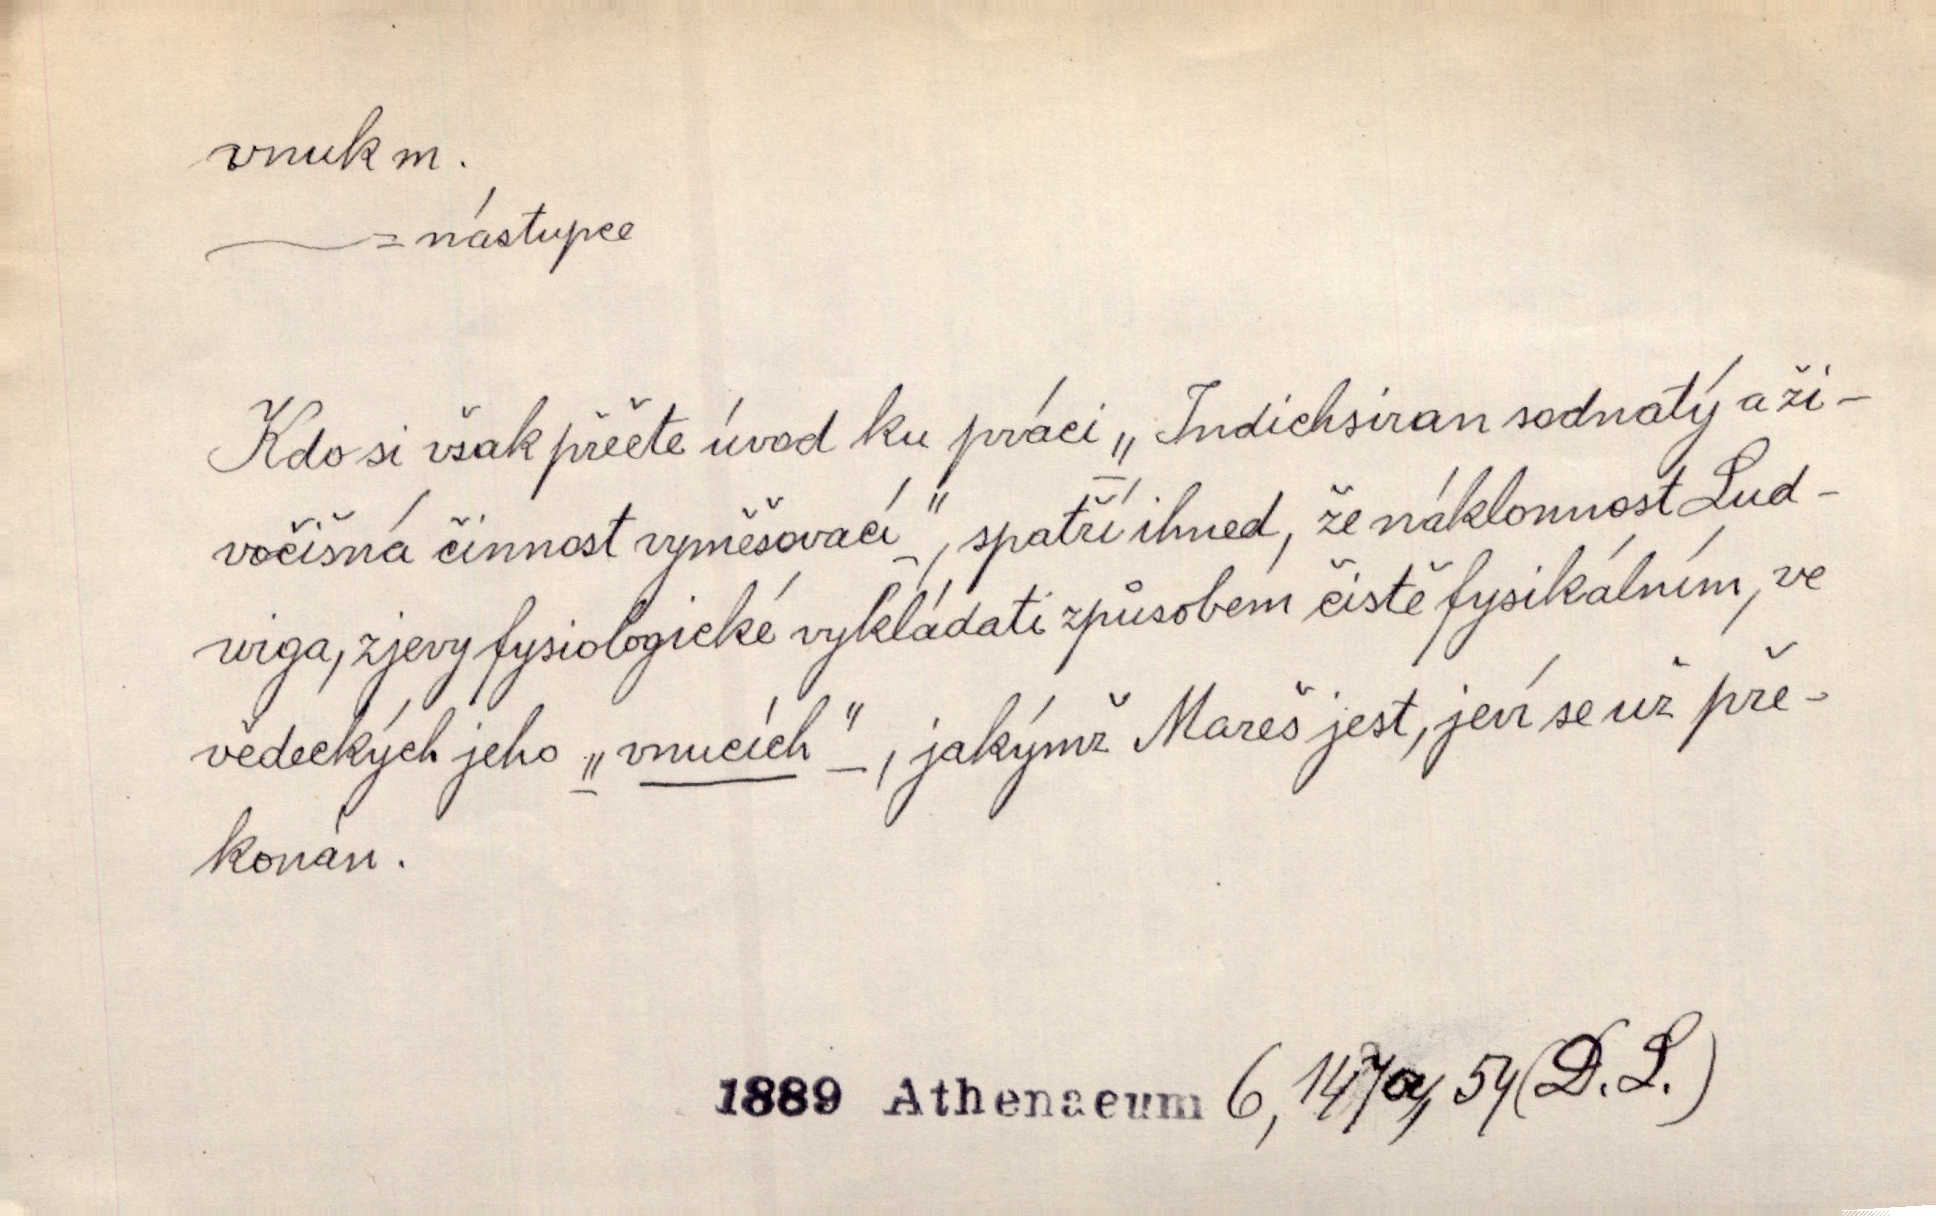 vnuk m.
= nástupce
Kdo si však přečte úvod ku práci „Indichsiran sodnatý a ži-
vočišná činnost vyměšovací", spatří ihned, že náklonnost Lud-
wiga, zjevy fysiologické vykládati způsobem čistě fysikálním, ve
vědeckých jeho „vnucích", jakýmž Mareš jest, jeví se už pře-
konán.
1889 Athenaeum 6, 147a, 54 (D. L.)